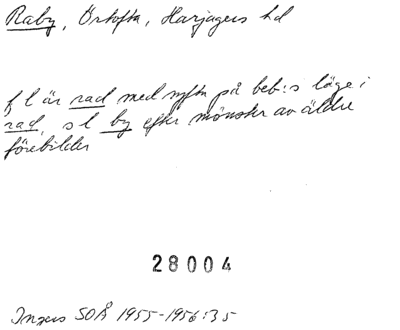 Raby, Örtofta, Harjagers hd
f l är rad med syftn på beb:s läge i
rad, s l by efter mönster av äldre
förebilder
28004
Ingers SOÅ 1955-1956:35